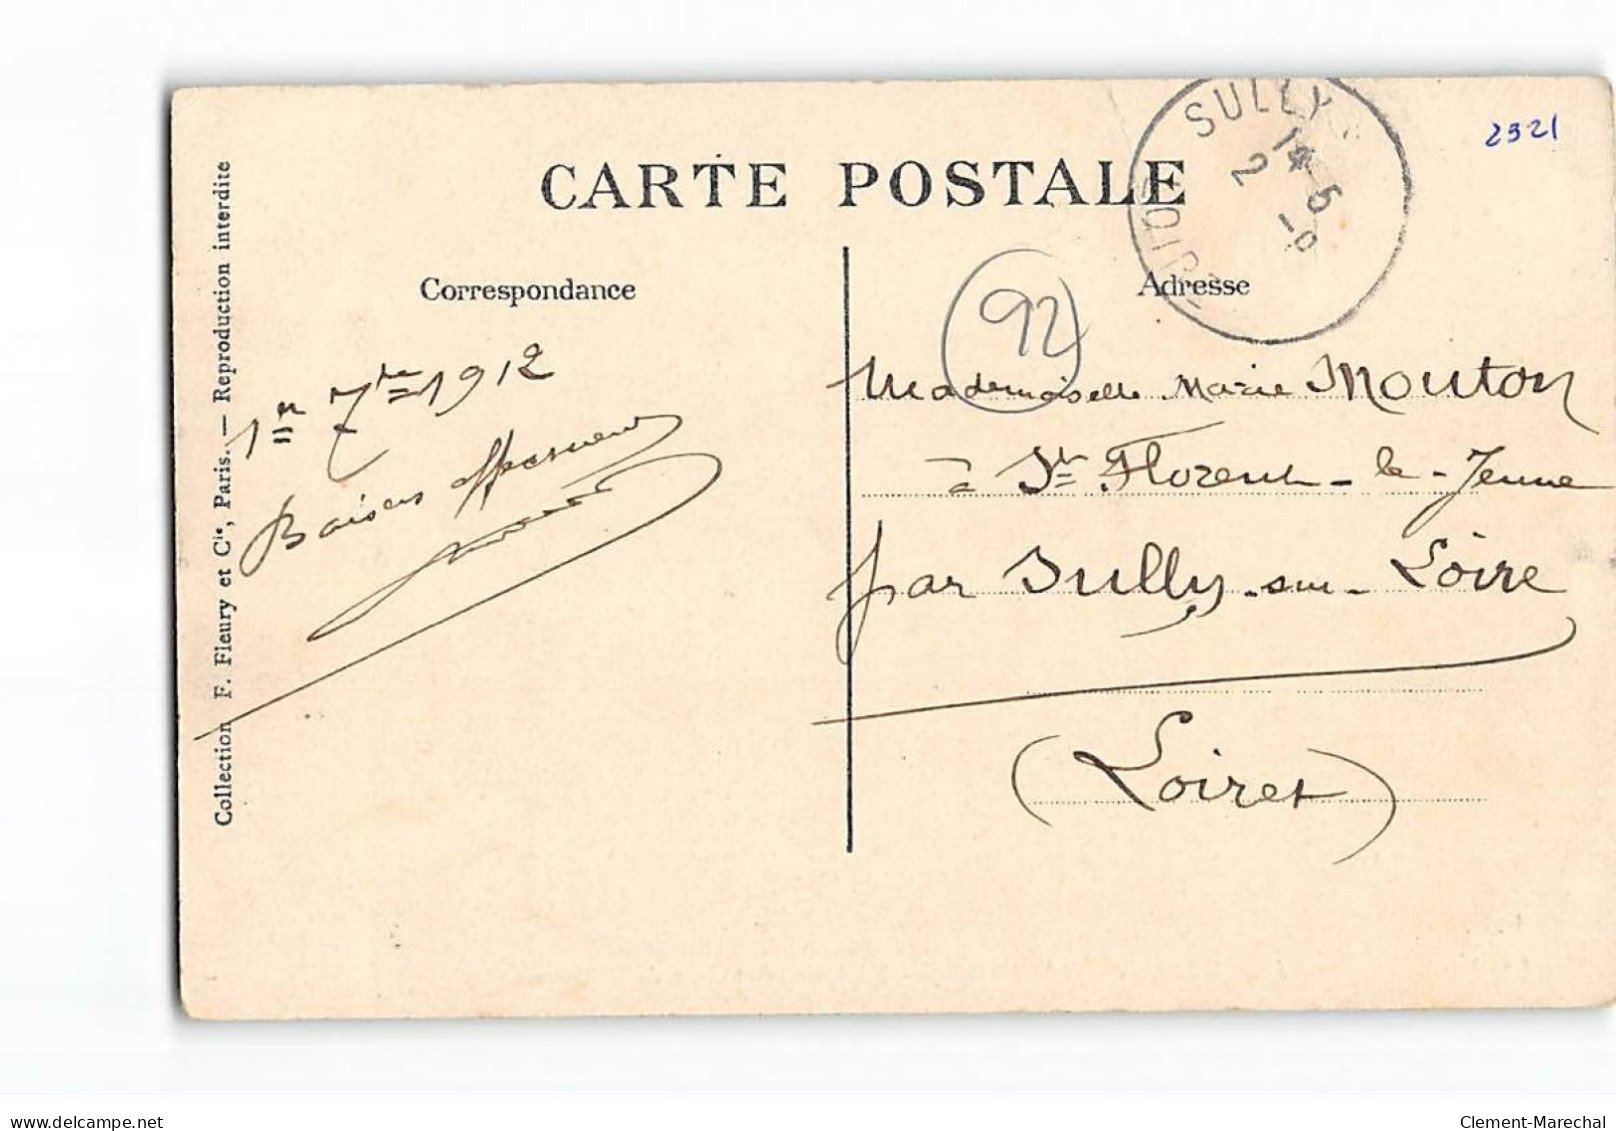 CARTE POSTALE
SULLY
14 5
2 -9
LOIRET
2321
Correspondance
Adresse
92
1er 7bre 1912
Baisers affectueux
Mademoiselle Marie Mouton
à St Florent-le-Jeune
par Sully-sur-Loire
(Loiret)
Collection F. Fleury et Cie, Paris. — Reproduction interdite
delcampe.net
Clement-Marechal